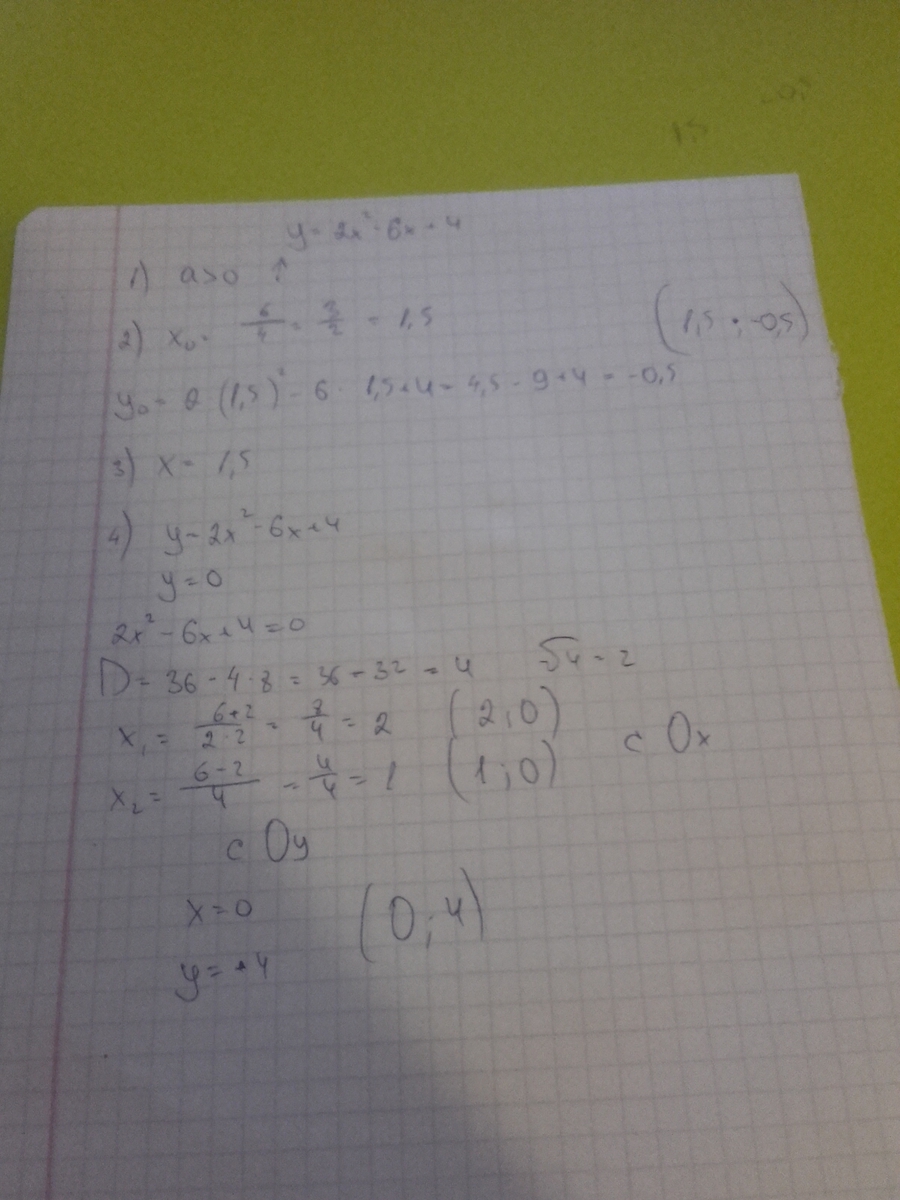 y = 2x² - 6x + 4
1) a>0 ↑
2) x₀ = 6/4 = 3/2 = 1,5 (1,5 ; -0,5)
y₀ = 2 (1,5)² - 6 · 1,5 + 4 = 4,5 - 9 + 4 = -0,5
3) x = 1,5
4) y = 2x² - 6x + 4
y = 0
2x² - 6x + 4 = 0
D = 36 - 4 · 8 = 36 - 32 = 4 √4 = 2
x₁ = (6+2)/(2·2) = 8/4 = 2 (2 ; 0)
с Ox
x₂ = (6-2)/4 = 4/4 = 1 (1 ; 0)
с Oy
x = 0 (0 ; 4)
y = +4